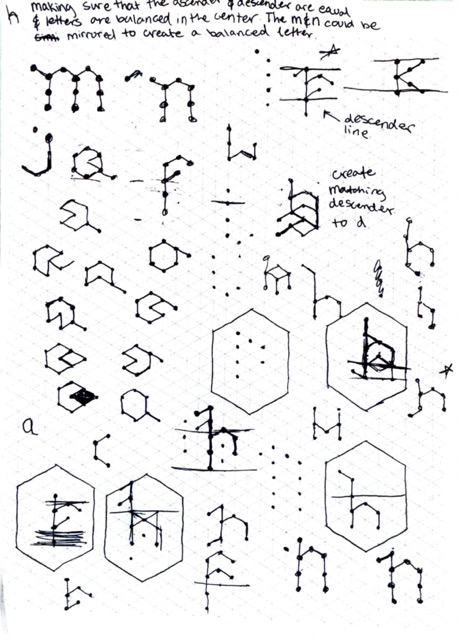 h making sure that the ascender & descender are equal
& letters are balanced in the center. The m&n could be
mirrored to create a balanced letter.
descender
line
create
matching
descender
to d
a